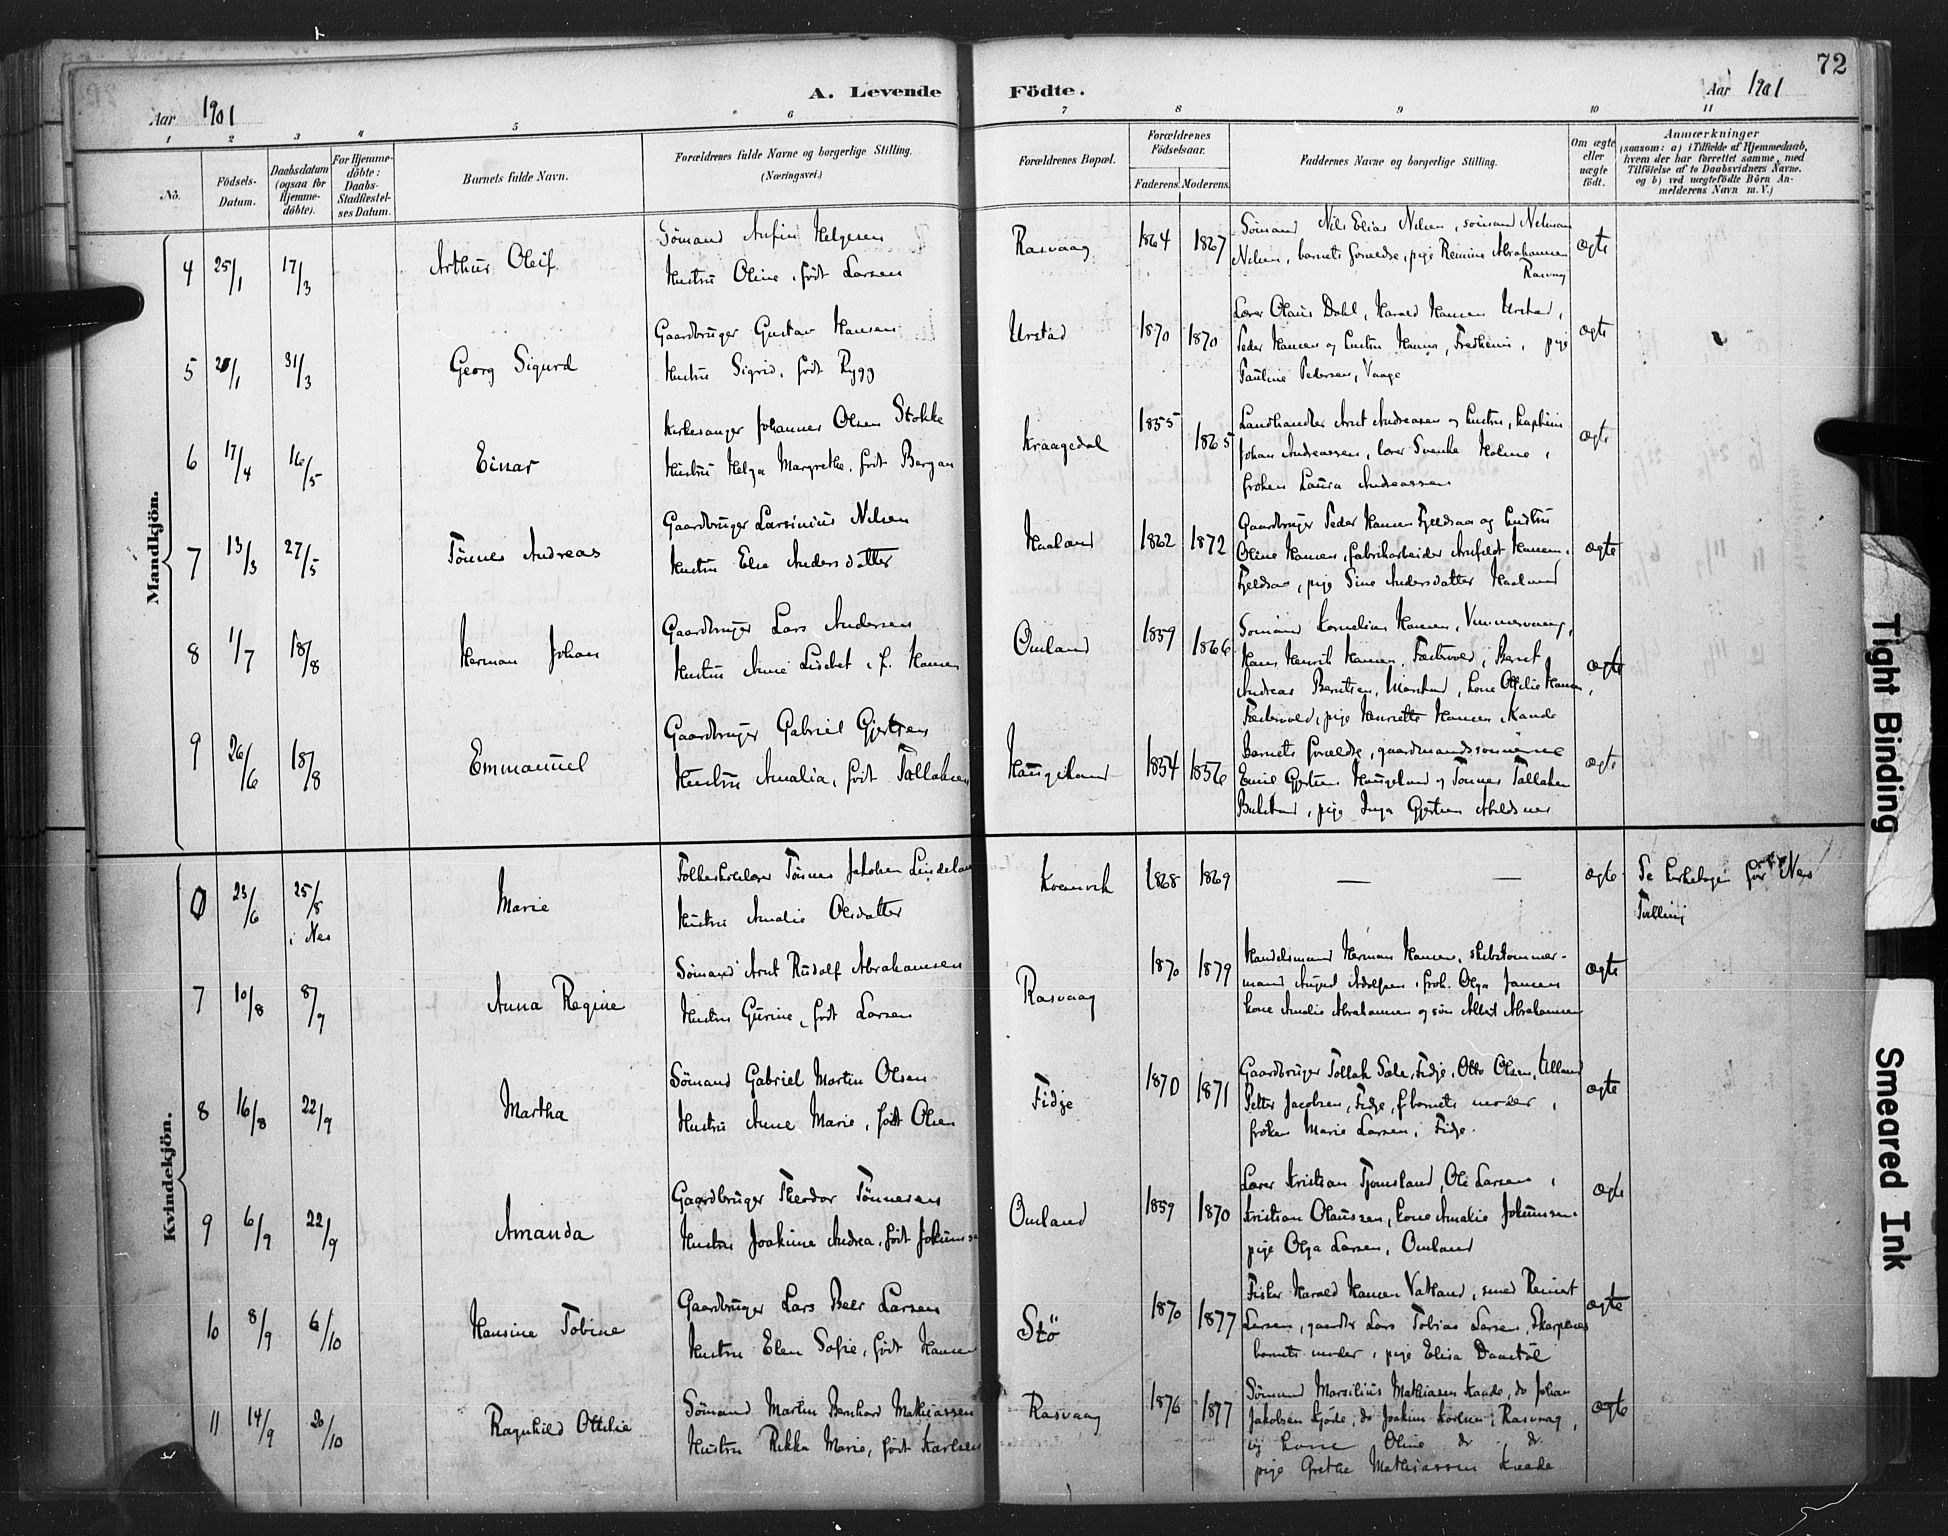 72
Aar 1901
A. Levende Födte.
Aar 1901
1 2 3 4 5 6 7 8 9 10 11
No.
Födsels-Datum.
Daabsdatum (ogsaa for Hjemmedöbte).
For Hjemmedöbte: Daabs-Stadfæstelses Datum.
Barnets fulde Navn.
Forældrenes fulde Navne og borgerlige Stilling. (Næringsvei.)
Forældrenes Bopæl.
Forældrenes Födselsaar.
Faderens. Moderens.
Faddernes Navne og borgerlige Stilling.
Om ægte eller uægte födt.
Anmærkninger
(saasom: a) i Tilfælde af Hjemmedaab, hvem der har forrettet samme, med Tilföielse af to Daabsvidners Navne. og b) ved uægtefödte Börn Anmelderens Navn m. V.)
Mandkjön.
4 25/1 17/3 Arthur Oleif
Sömand Anfin Helgesen
Hustru Oline, födt Larsen
Rasvaag 1864 1867
Sömand Nils Elias Nilsen, sömand
Nilsen, barnets forældre, pige Abrahamsen
Rasvaag
ægte
5 /1 31/3 Georg Sigurd
Gaardbruger Gustav Hansen
Hustru Sigrid, födt Rygg
Urstad 1870 1870
Lærer Olaus Dahl, Harald Hansen Urstad,
Peder Hansen og hustru Hanna, pige
Pauline Pedersen, Vaage
ægte
6 17/4 16/5 Einar
Kirkesanger Johannes Olsen Stokke
Hustru Helga Margrethe, födt Bergan
Kraagedal 1855 1865
Landhandler Arnt Andreasen og hustru, kaptein
Johan Andreassen, lærer Svenke Holme,
fröken Laura Andreassen
ægte
7 13/3 27/5 Tönnes Andreas
Gaardbruger Larsinius Nilsen
Hustru Else Andersdatter
Haaland 1862 1872
Gaardbruger Peder Hansen Fjeldsaa og hustru
Oline Hansen, fabrikarbeider Hansen,
Fjeldsaa, pige Sine Andersdatter Haaland
ægte
8 1/7 18/8 Herman Johan
Gaardbruger Lars Andersen
Hustru Anne Lisebet, f. Hansen
Omland 1859 1866
Sömand Kornelius Hansen,
Hans Henrik Hansen, Bernt
Andreas Berntsen, kone Ottilie Hansen,
pige Henriette Hansen
ægte
9 26/6 18/8 Emmanuel
Gaardbruger Gabriel Gjertsen
Hustru Amalia, födt Tallaksen
Haugeland 1854 1856
Barnets forældre, gaardmandssönnerne
Emil Gjertsen Haugeland og Tönnes Tallaksen
pige Inga Gjertsen
ægte
Kvindekjön.
0 23/6 25/8 i Nes Marie
Folkeskolelærer Tönnes Jakobsen Lindeland
Hustru Amalie Olsdatter
Kvanvik 1868 1869
— —
ægte
Se kirkebogen for Nes
7 10/8 8/9 Anna Regine
Sömand Arnt Rudolf Abrahamsen
Hustru Gurine, födt Larsen
Rasvaag 1870 1879
Handelsmand Herman Hansen, skibstömmer-
mand August Adolfsen, frök. Olga Jansen
kone Amalie Abrahamsen og sön Albert Abrahamsen
ægte
8 16/8 22/9 Martha
Sömand Gabriel Martin Olsen
Hustru Anne Marie, födt Olsen
Fidje 1870 1871
Gaardbruger Tollak Fidje, Otto Olsen, Ulland
Petter Jacobsen, Fidje, barnets moder,
fröken Marie Larsen, Fidje.
ægte
9 6/9 22/9 Amanda
Gaardbruger Theodor Tönnesen
Hustru Joakime Andrea, födt
Omland 1859 1870
Lærer Kristian Tjomsland, Ole Larsen,
Kristian Olaussen, kone Amalie
pige Olga Larsen, Omland
ægte
10 8/9 6/10 Hansine Tobine
Gaardbruger Lars Beer Larsen
Hustru Elen Sofie, födt Hansen
Stö 1870 1877
Fisker Harald Hansen Vatland, smed Reinert
Larsen, Lars Tobias Larsen,
barnets moder, pige Elisa
ægte
11 14/9 20/10 Ragnhild Ottilie
Sömand Martin Bernhard Mathiassen
Hustru Rikka Marie, födt Karlsen
Rasvaag 1876 1877
Sömand Marsilius Mathiasen Kaade, do Johan
Jakobsen, do Joakim Karlsen, Rasvaag,
og kone Oline do do
pige Grethe Mathiassen Kaade
ægte
Tight Binding
Smeared Ink